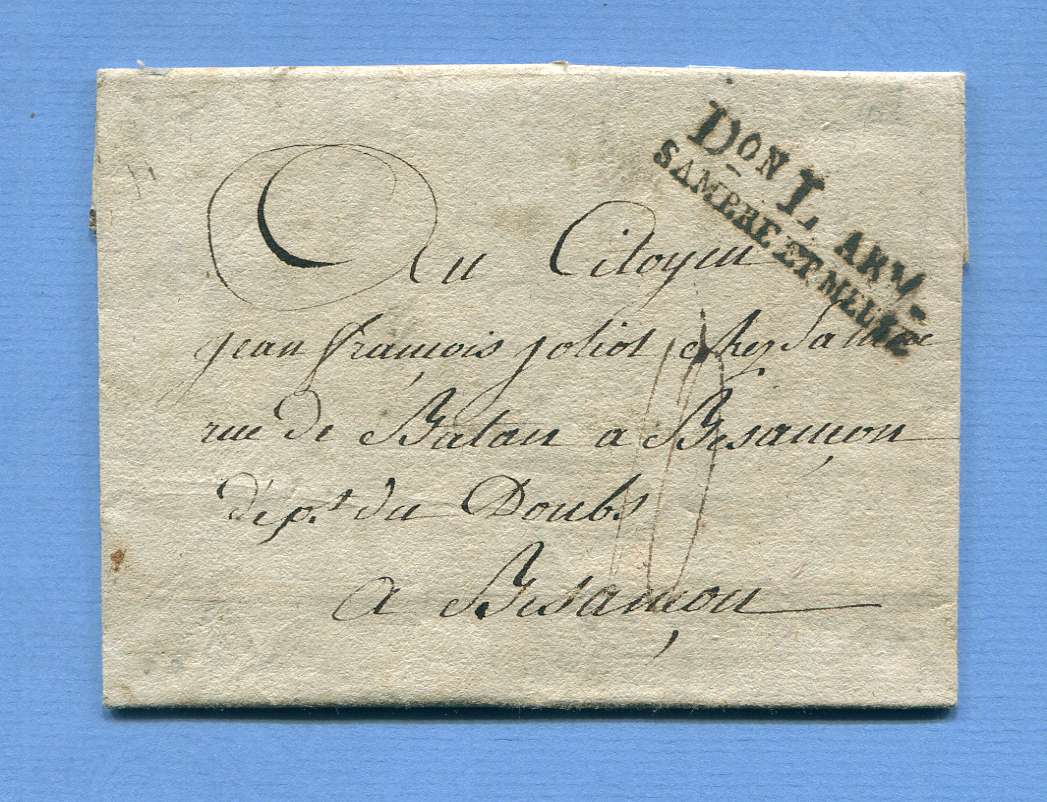 DON L ARM.
SAMBRE ET MEUSE
Au Citoyen
jean françois joliot chez sa mere
rue de Batan a Besançon
dépt. du Doubs
a Besançon